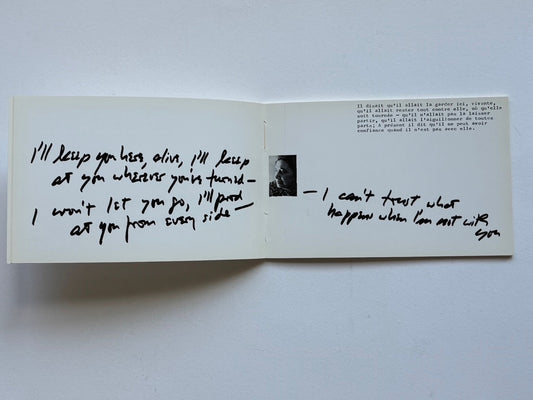 I'll keep you here, alive, I'll keep
at you wherever you're turned —
I won't let you go, I'll prod
at you from every side —
Il disait qu'il allait la garder ici, vivante,
qu'il allait rester tout contre elle, où qu'elle
soit tournée - qu'il n'allait pas la laisser
partir, qu'il allait l'aiguillonner de toutes
parts; A présent il dit qu'il ne peut avoir
confiance quand il n'est pas avec elle.
— I can't trust what
happens when I'm not with
you